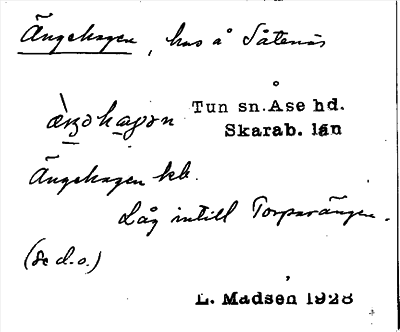 Ängehagen, hus å Såtenäs
Tun sn. Åse hd.
Skarab. län
Ängehagen kb.
Låg intill Torparängen.
(se d.o.)
L. Madsen 1928